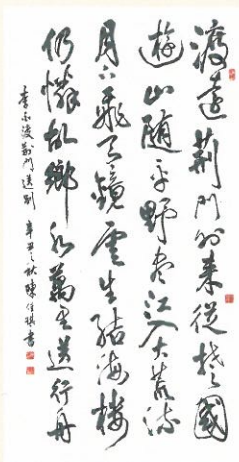 渡远荆门外来從楚國
遊山随平野尽江入大荒流
月下飛天鏡雲生结海樓
仍憐故鄉水萬里送行舟
李白渡荆門送别 辛丑之秋陳佳琪書